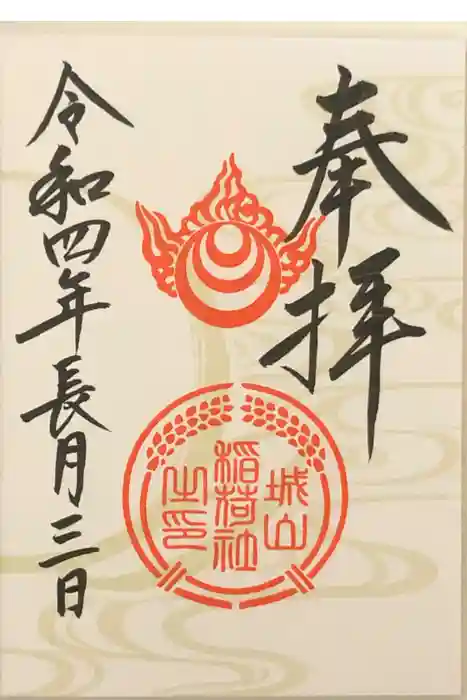 奉拝
城山
稲荷社
之印
令和四年長月三日